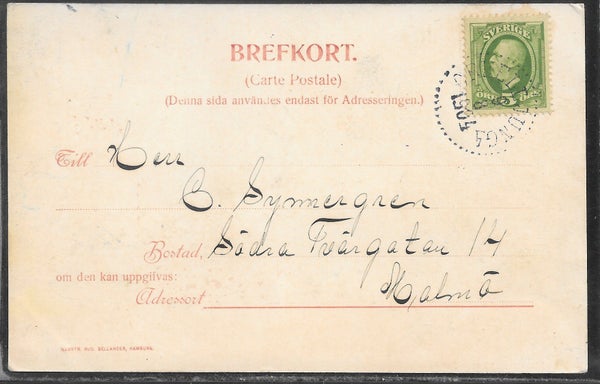 BREFKORT.
(Carte Postale)
(Denna sida användes endast för Adresseringen.)
SVERIGE
5
Till Herr
C. Synnergren
Bostad, Södra Tvärgatan 14
om den kan uppgifvas:
Malmö
Adressort